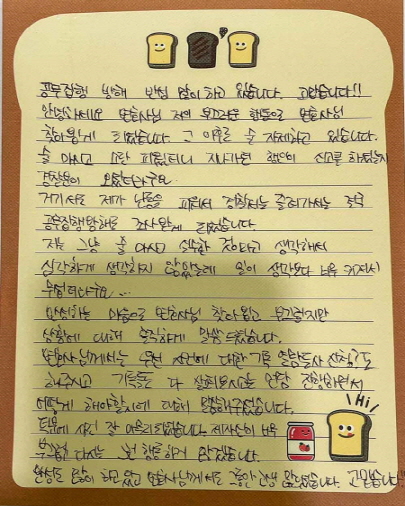 공무집행 방해 반성 많이 하고 있습니다. 고맙습니다!!
안녕하세요 변호사님 저의 부끄러운 행동으로 변호사님
찾아뵙게 되었습니다. 그 이후로 술 자제하고 있습니다.
술 마시고 소란 피웠더니 지나가던 행인이 신고를 하셨는지
경찰분이 오셨더라구요
거기서도 제가 난동을 피워서 경찰서로 끌려가서는 결국
공무집행방해로 조사받게 되었습니다.
저는 그냥 술 마시고 실수한 정도라고 생각해서
심각하게 생각하지 않았는데 일이 생각보다 너무 커져서
무섭더라구요...
반성하는 마음으로 변호사님 찾아뵙고 부끄럽지만
상황에 대해 솔직하게 말씀드렸습니다.
변호사님께서는 우선 사건에 대한 기록 열람등사 신청?도
해주시고 기록들도 다 살펴보시는 연락 진행하면서
어떻게 해야할지에 대해 말씀해주셨습니다.
덕분에 사건 잘 마무리되었습니다. 제 자신이 너무
부끄럽고 다시는 그런 행동하지 않겠습니다.
반성도 많이 하고 있고 변호사님께서도 그동안 고생 많으셨습니다. 고맙습니다!!
Hi